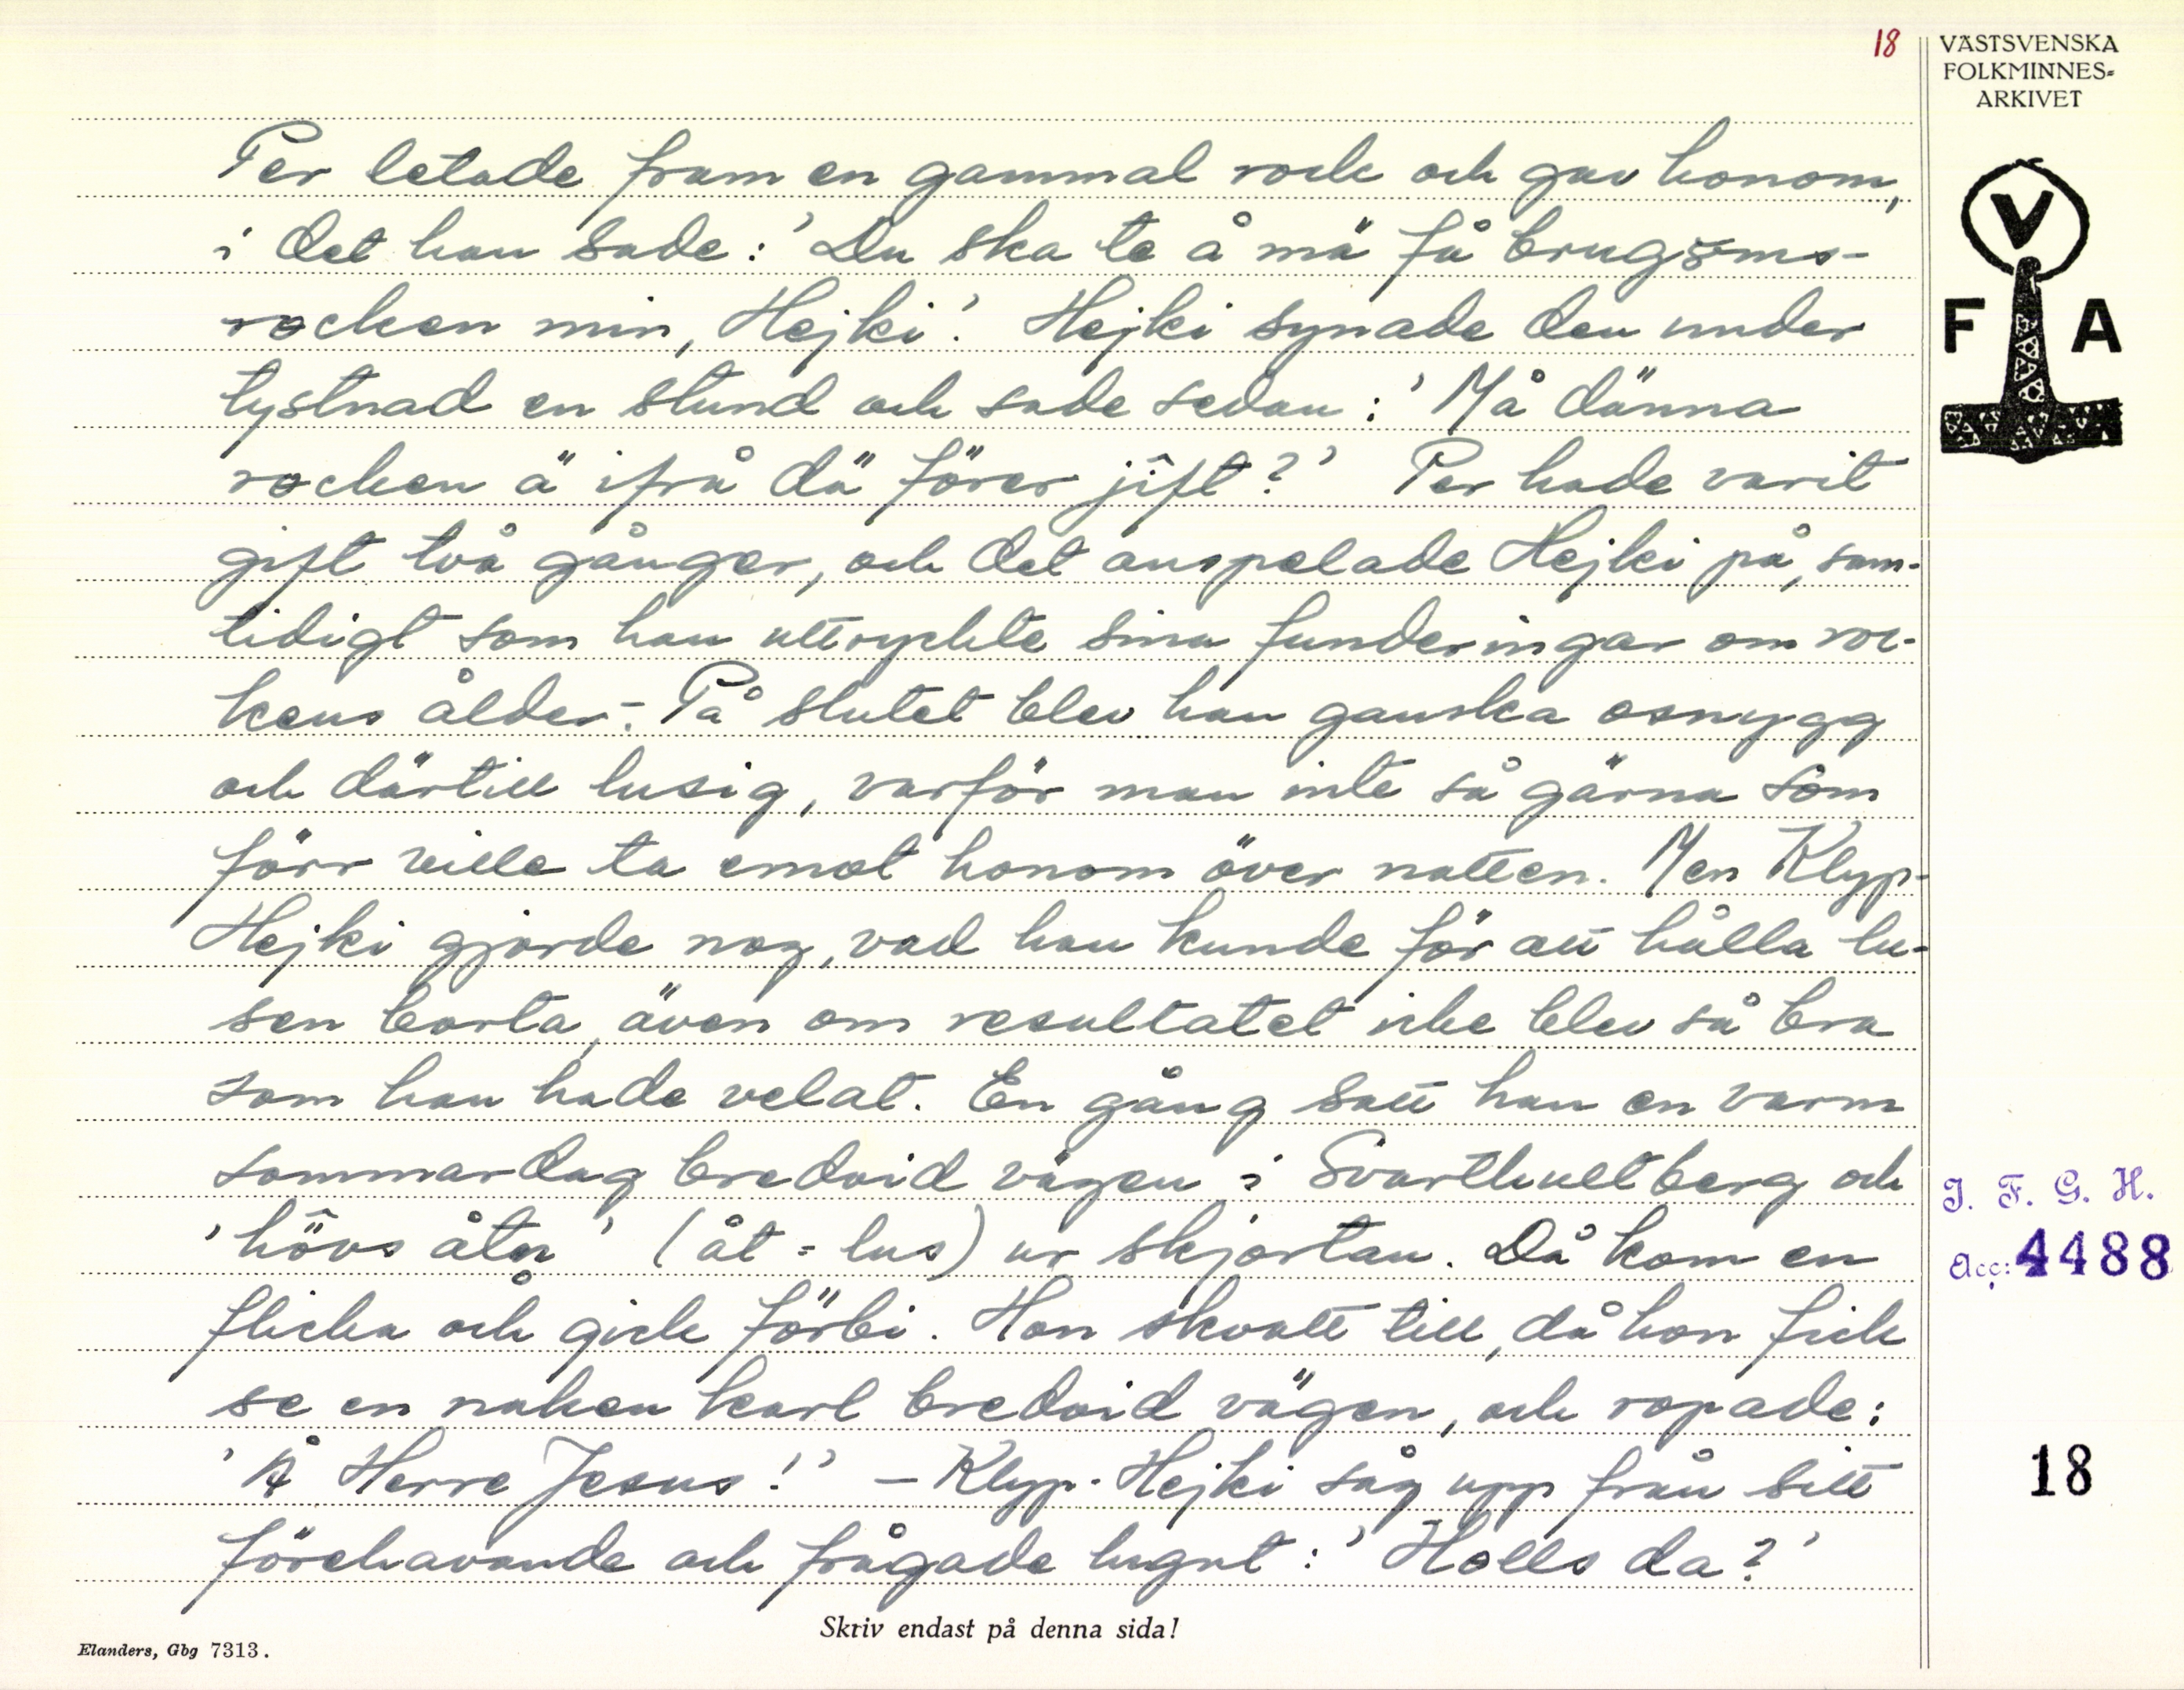 18
VÄSTSVENSKA
FOLKMINNES-
ARKIVET
V
F A
Per letade fram en gammal rock och gav honom,
i det han sade: 'Du ska te å mä få brugöms-
rocken min, Hejki'. Hejki synade den under
tystnad en stund och sade sedan: 'Må dänna
rocken ä ifrå dä förer jift?' Per hade varit
gift två gånger, och det anspelade Hejki på, sam-
tidigt som han uttryckte sina funderingar om roc-
kens ålder.- På slutet blev han ganska osnygg
och därtill lusig, varför man inte så gärna som
förr ville ta emot honom över natten. Men Klyp-
Hejki gjorde nog, vad han kunde för att hålla lu-
sen borta, även om resultatet icke blev så bra
som han hade velat. En gång satt han en varm
sommardag bredvid vägen i Svarthultberg och
'hövs åta' (åt = lus) ur skjortan. Då kom en
flicka och gick förbi. Hon skvatt till, då hon fick
se en naken karl bredvid vägen, och ropade:
'Å Herre Jesus!' - Klyp-Hejki såg upp från sitt
förehavande och frågade lugnt: 'Holls da?'
I. F. G. H.
Acc: 4488
18
Skriv endast på denna sida!
Elanders, Gbg 7313.